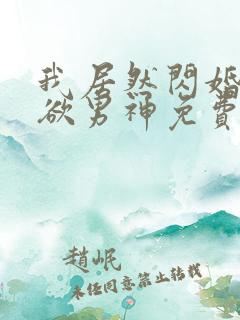 我居然閃婚
欲男神免費
趙岷
未任同意禁止轉載